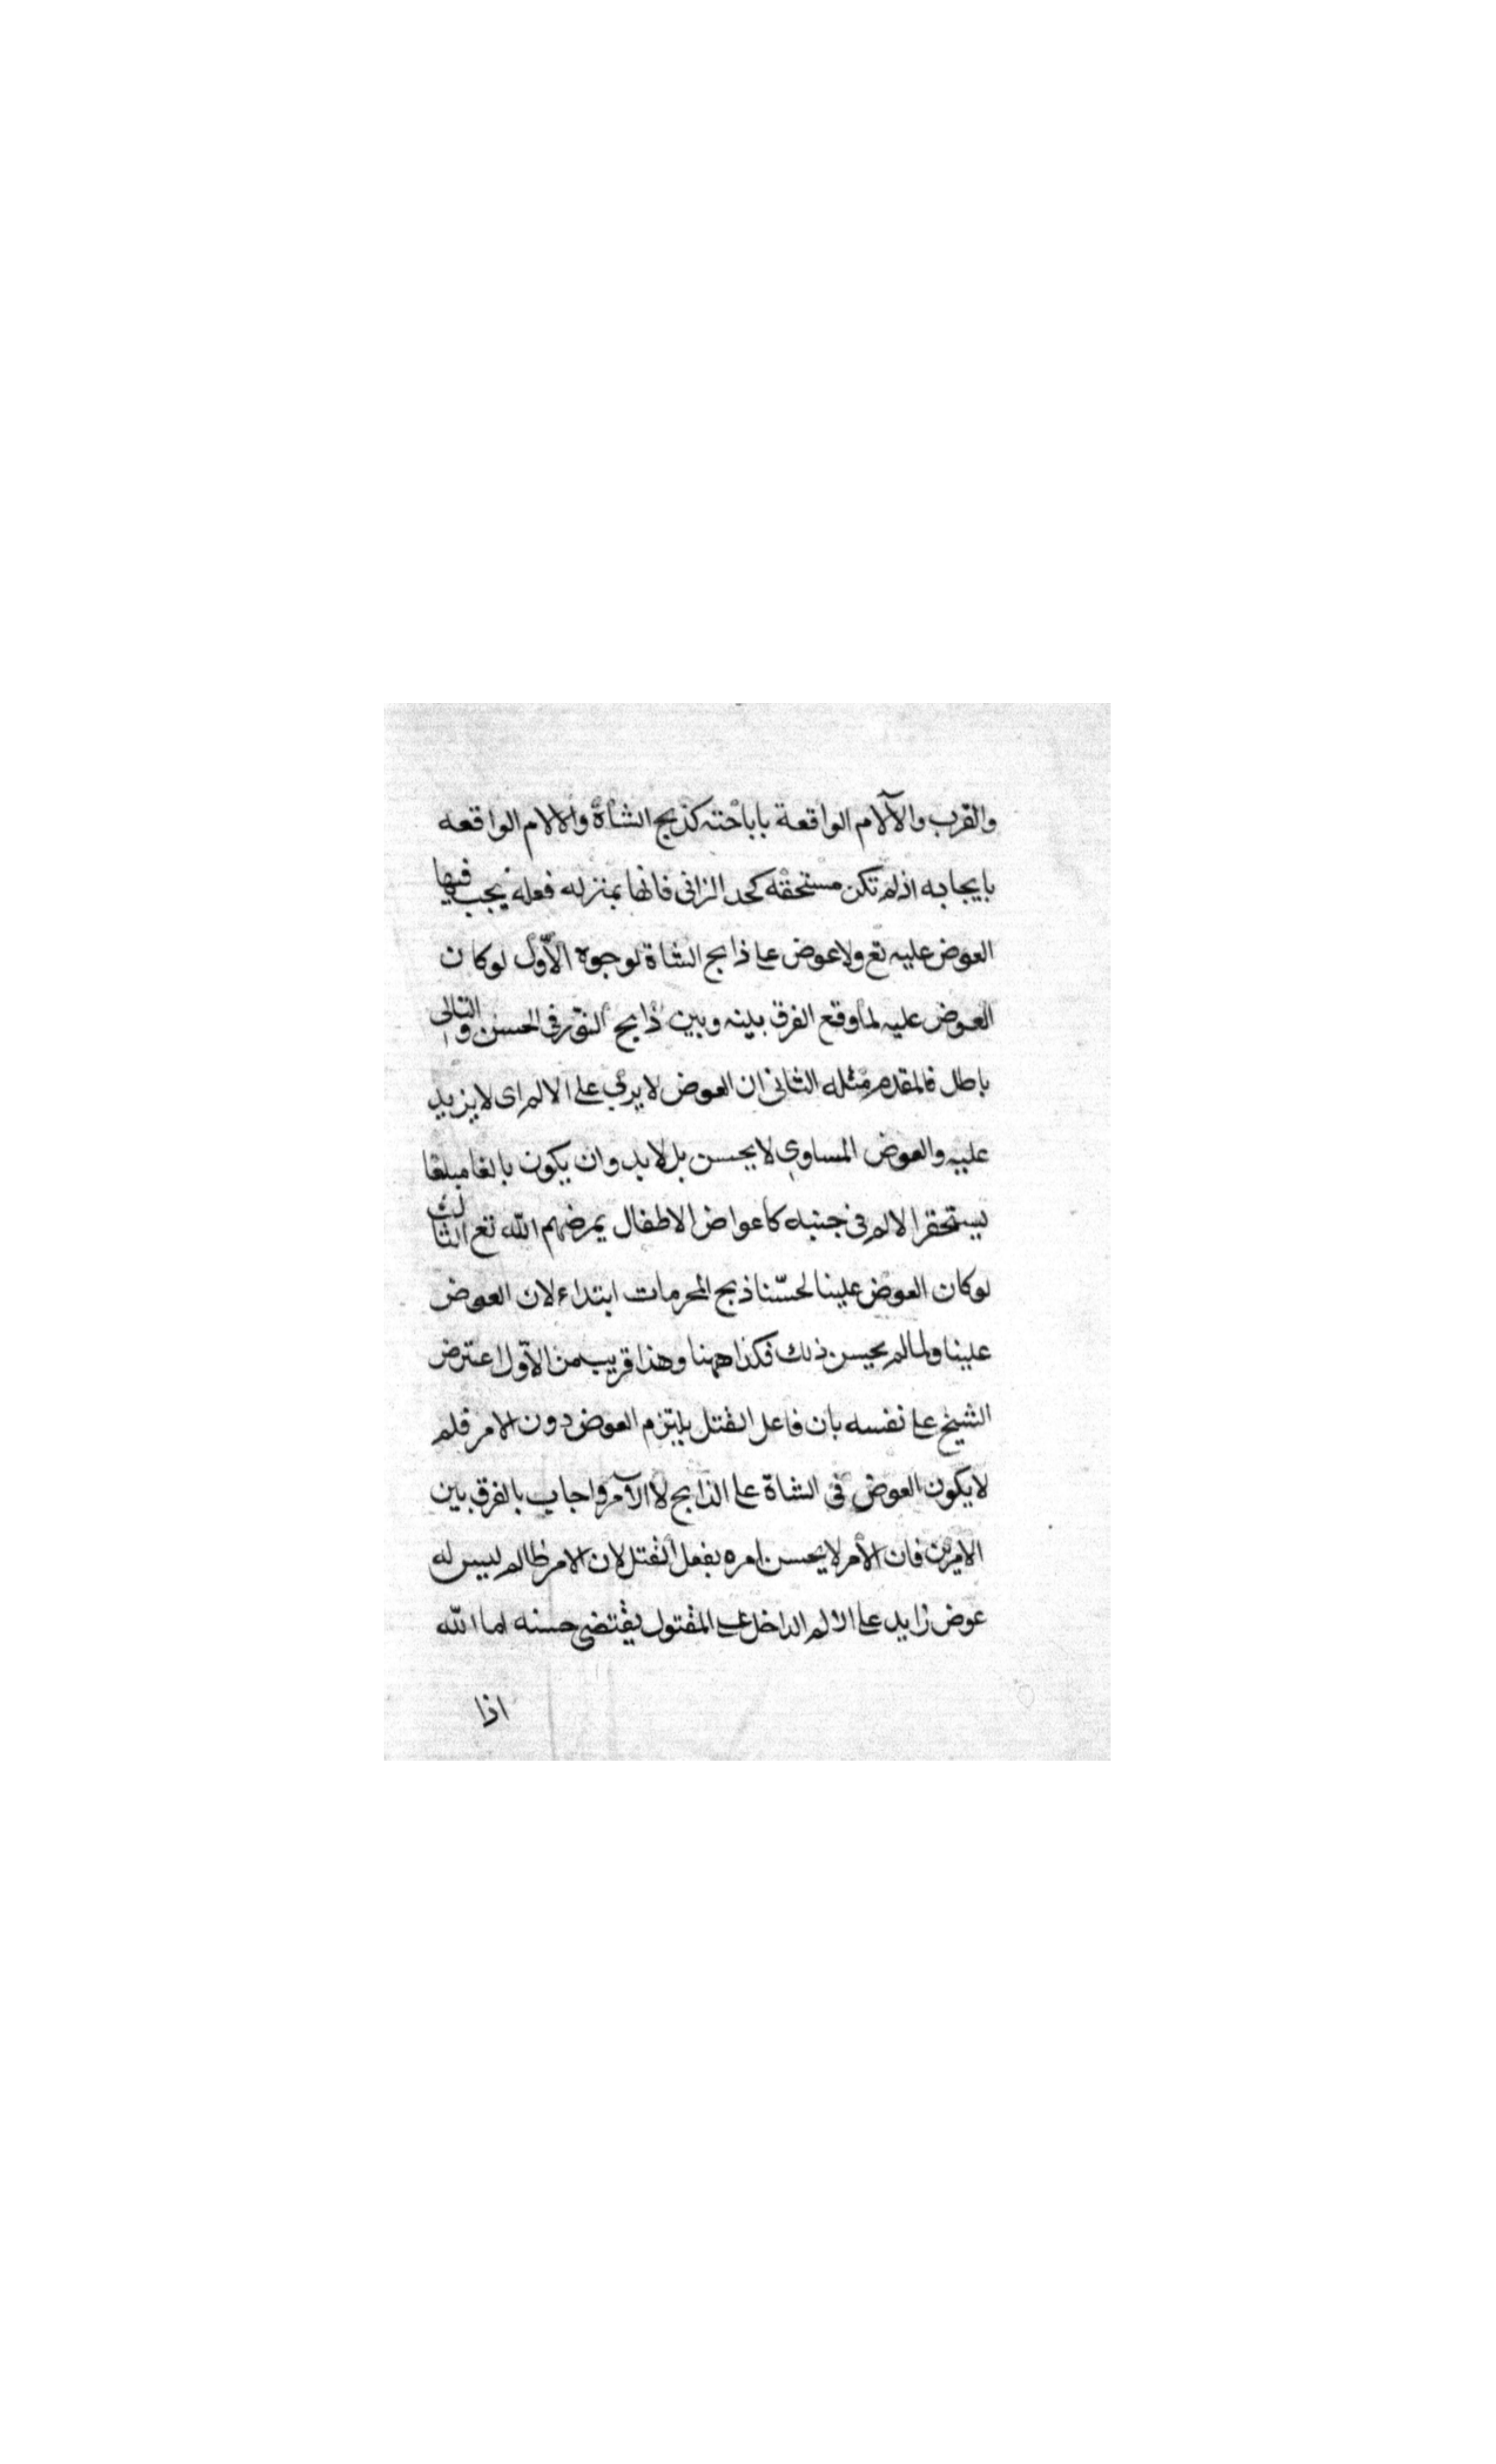 والقرب والآلام الواقعة باباحته كذبح الشاة والالام الواقعه
بايجابه اذ لم تكن مستحقه كحد الزانى فانها بمنزله فعله يجب فيها
العوض عليه تع ولا عوض على ذابح الشاة لوجوه الأول لو كان
العوض عليه لما وقع الفرق بينه وبين ذابح فى الحسن والتالى
باطل فالمقدم مثله الثانى ان العوض لا يربى على الالم اى لا يزيد
عليه والعوض المساوى لا يحسن بل لا بد وان يكون بالغا مبلغا
يستحقر الالم فى جنبه كاعواض الاطفال يمرضهم الله تع الثالث
لو كان العوض علينا لحسّنا ذبح المحرمات ابتداء لان العوض
علينا ولما لم يحسن ذلك فكذا ههنا وهذا قريب من الاوّل اعترض
الشيخ على نفسه بان فاعل القتل يلتزم العوض دون الامر فلم
لا يكون العوض فى الشاة على الذابح لا الآمر واجاب بالفرق بين
الامرين فان الأمر لا يحسن امره بفعل القتل لان الامر ظالم ليس له
عوض زايد على الالم الداخل على المقتول يقتضى حسنه اما الله
اذا